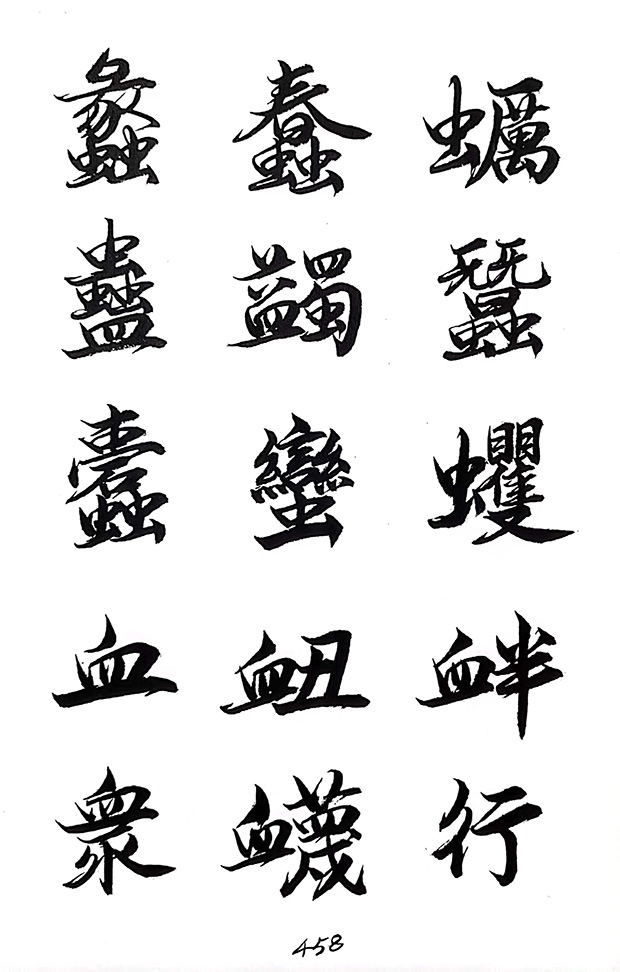 蠡 蠢 蠣
蠱 蠲 蠶
蠹 蠻 蠼
血 衄 衅
衆 衊 行
458